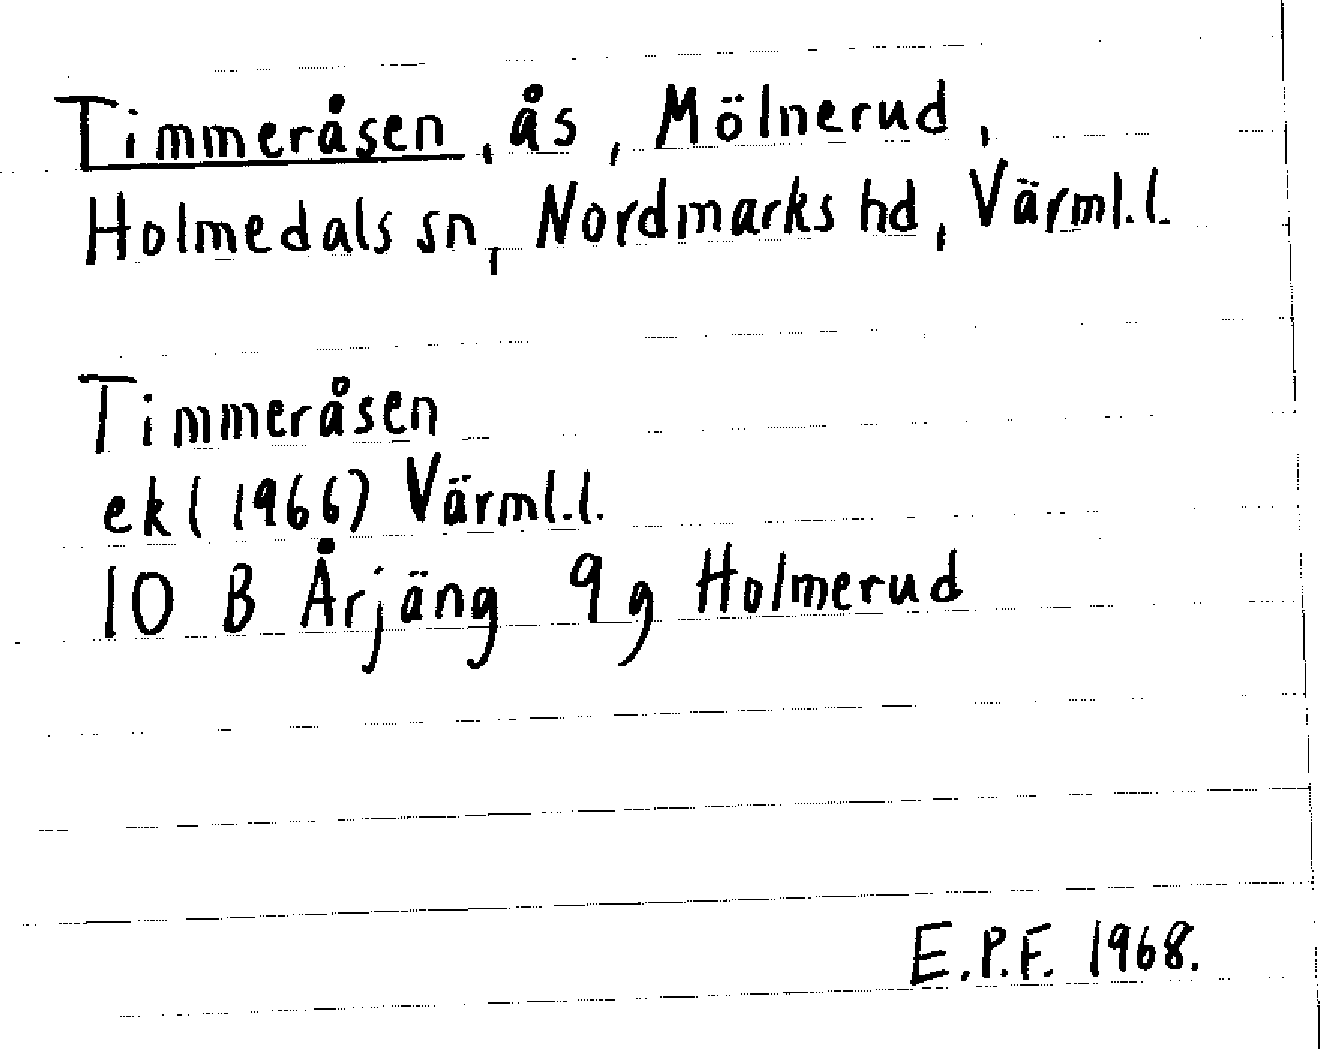 Timmeråsen, ås, Mölnerud,
Holmedals sn, Nordmarks hd, Värml.l.
Timmeråsen
ek (1966) Värml.l.
10 B Årjäng 9 g Holmerud
E.P.F. 1968.